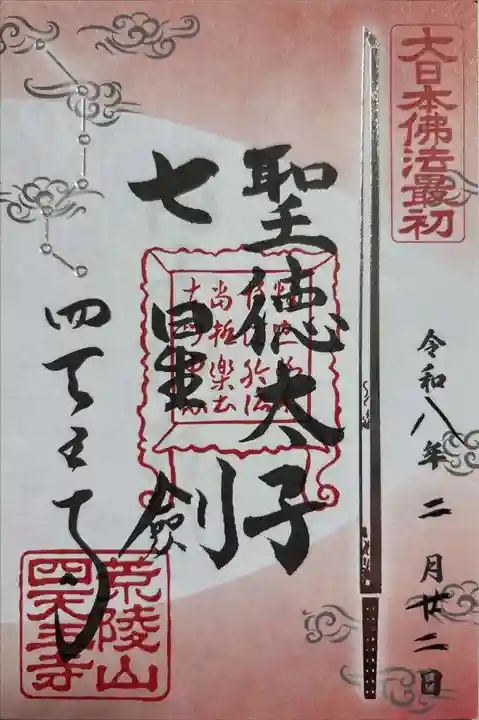 大日本佛法最初
令和八年二月廿二日
聖徳太子
七星剣
四天王寺
荒陵山
四天王寺